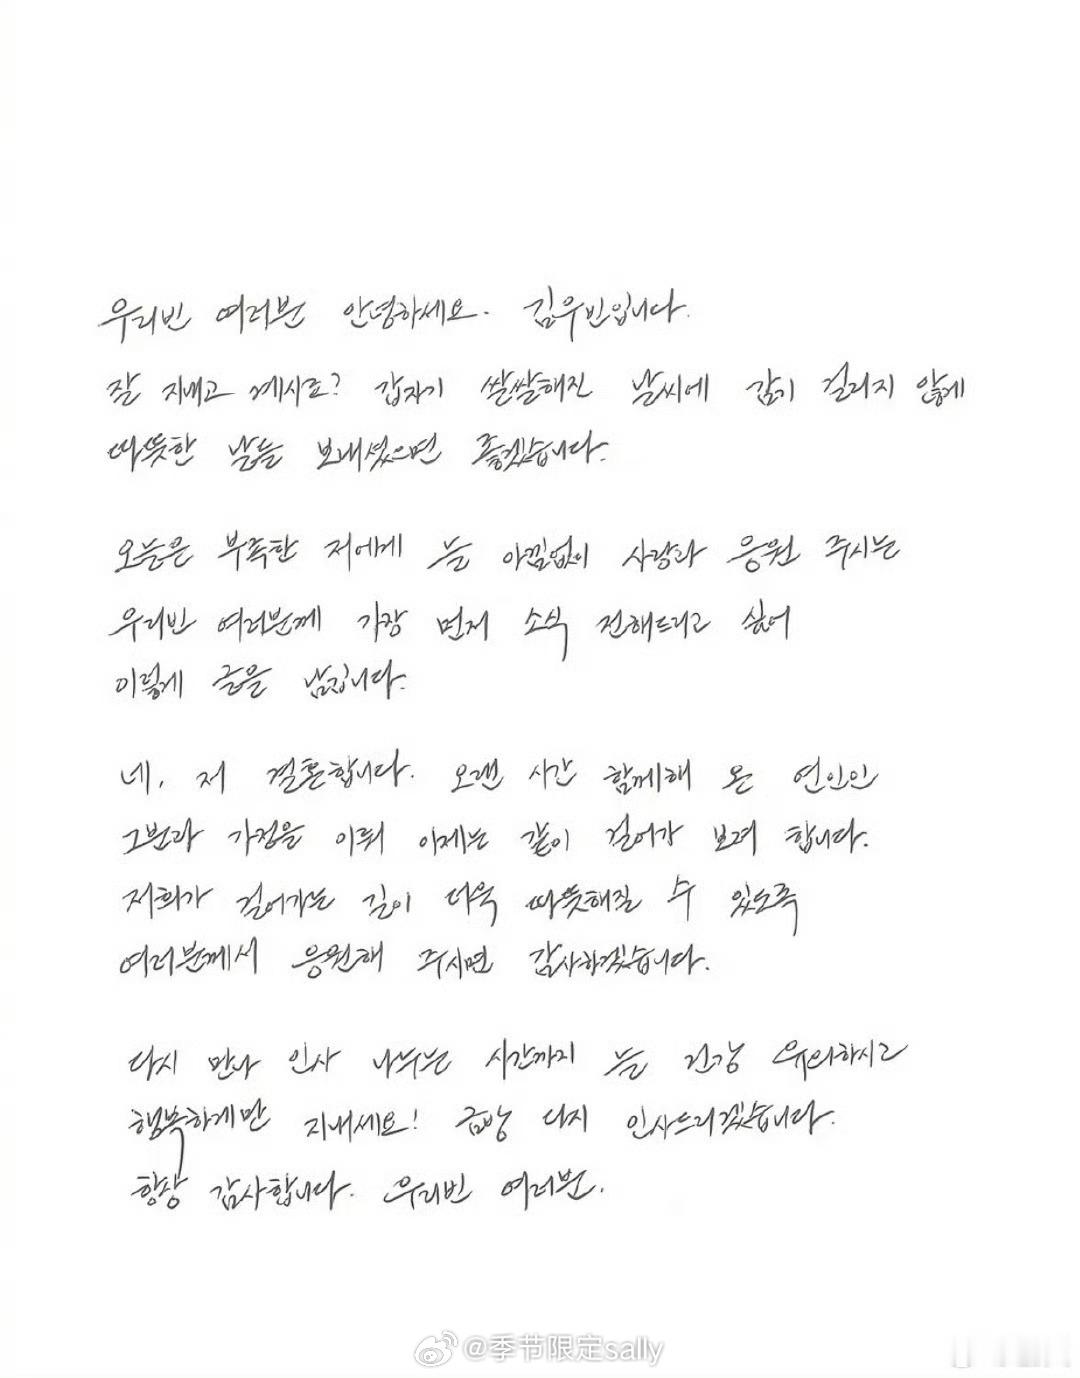 우리빈 여러분 안녕하세요. 김우빈입니다.
잘 지내고 계시죠? 갑자기 쌀쌀해진 날씨에 감기 걸리지 않게
따뜻한 날들 보내셨으면 좋겠습니다.
오늘은 부족한 저에게 늘 아낌없이 사랑과 응원 주시는
우리빈 여러분께 가장 먼저 소식 전해드리고 싶어
이렇게 글을 남깁니다.
네, 저 결혼합니다. 오랜 시간 함께해 온 연인인
그분과 가정을 이뤄 이제는 같이 걸어가 보려 합니다.
저희가 걸어가는 길이 더욱 따뜻해질 수 있도록
여러분께서 응원해 주시면 감사하겠습니다.
다시 만나 인사 나누는 시간까지 늘 건강 유의하시고
행복하게만 지내세요! 금방 다시 인사드리겠습니다.
항상 감사합니다. 우리빈 여러분.
@季节限定sally